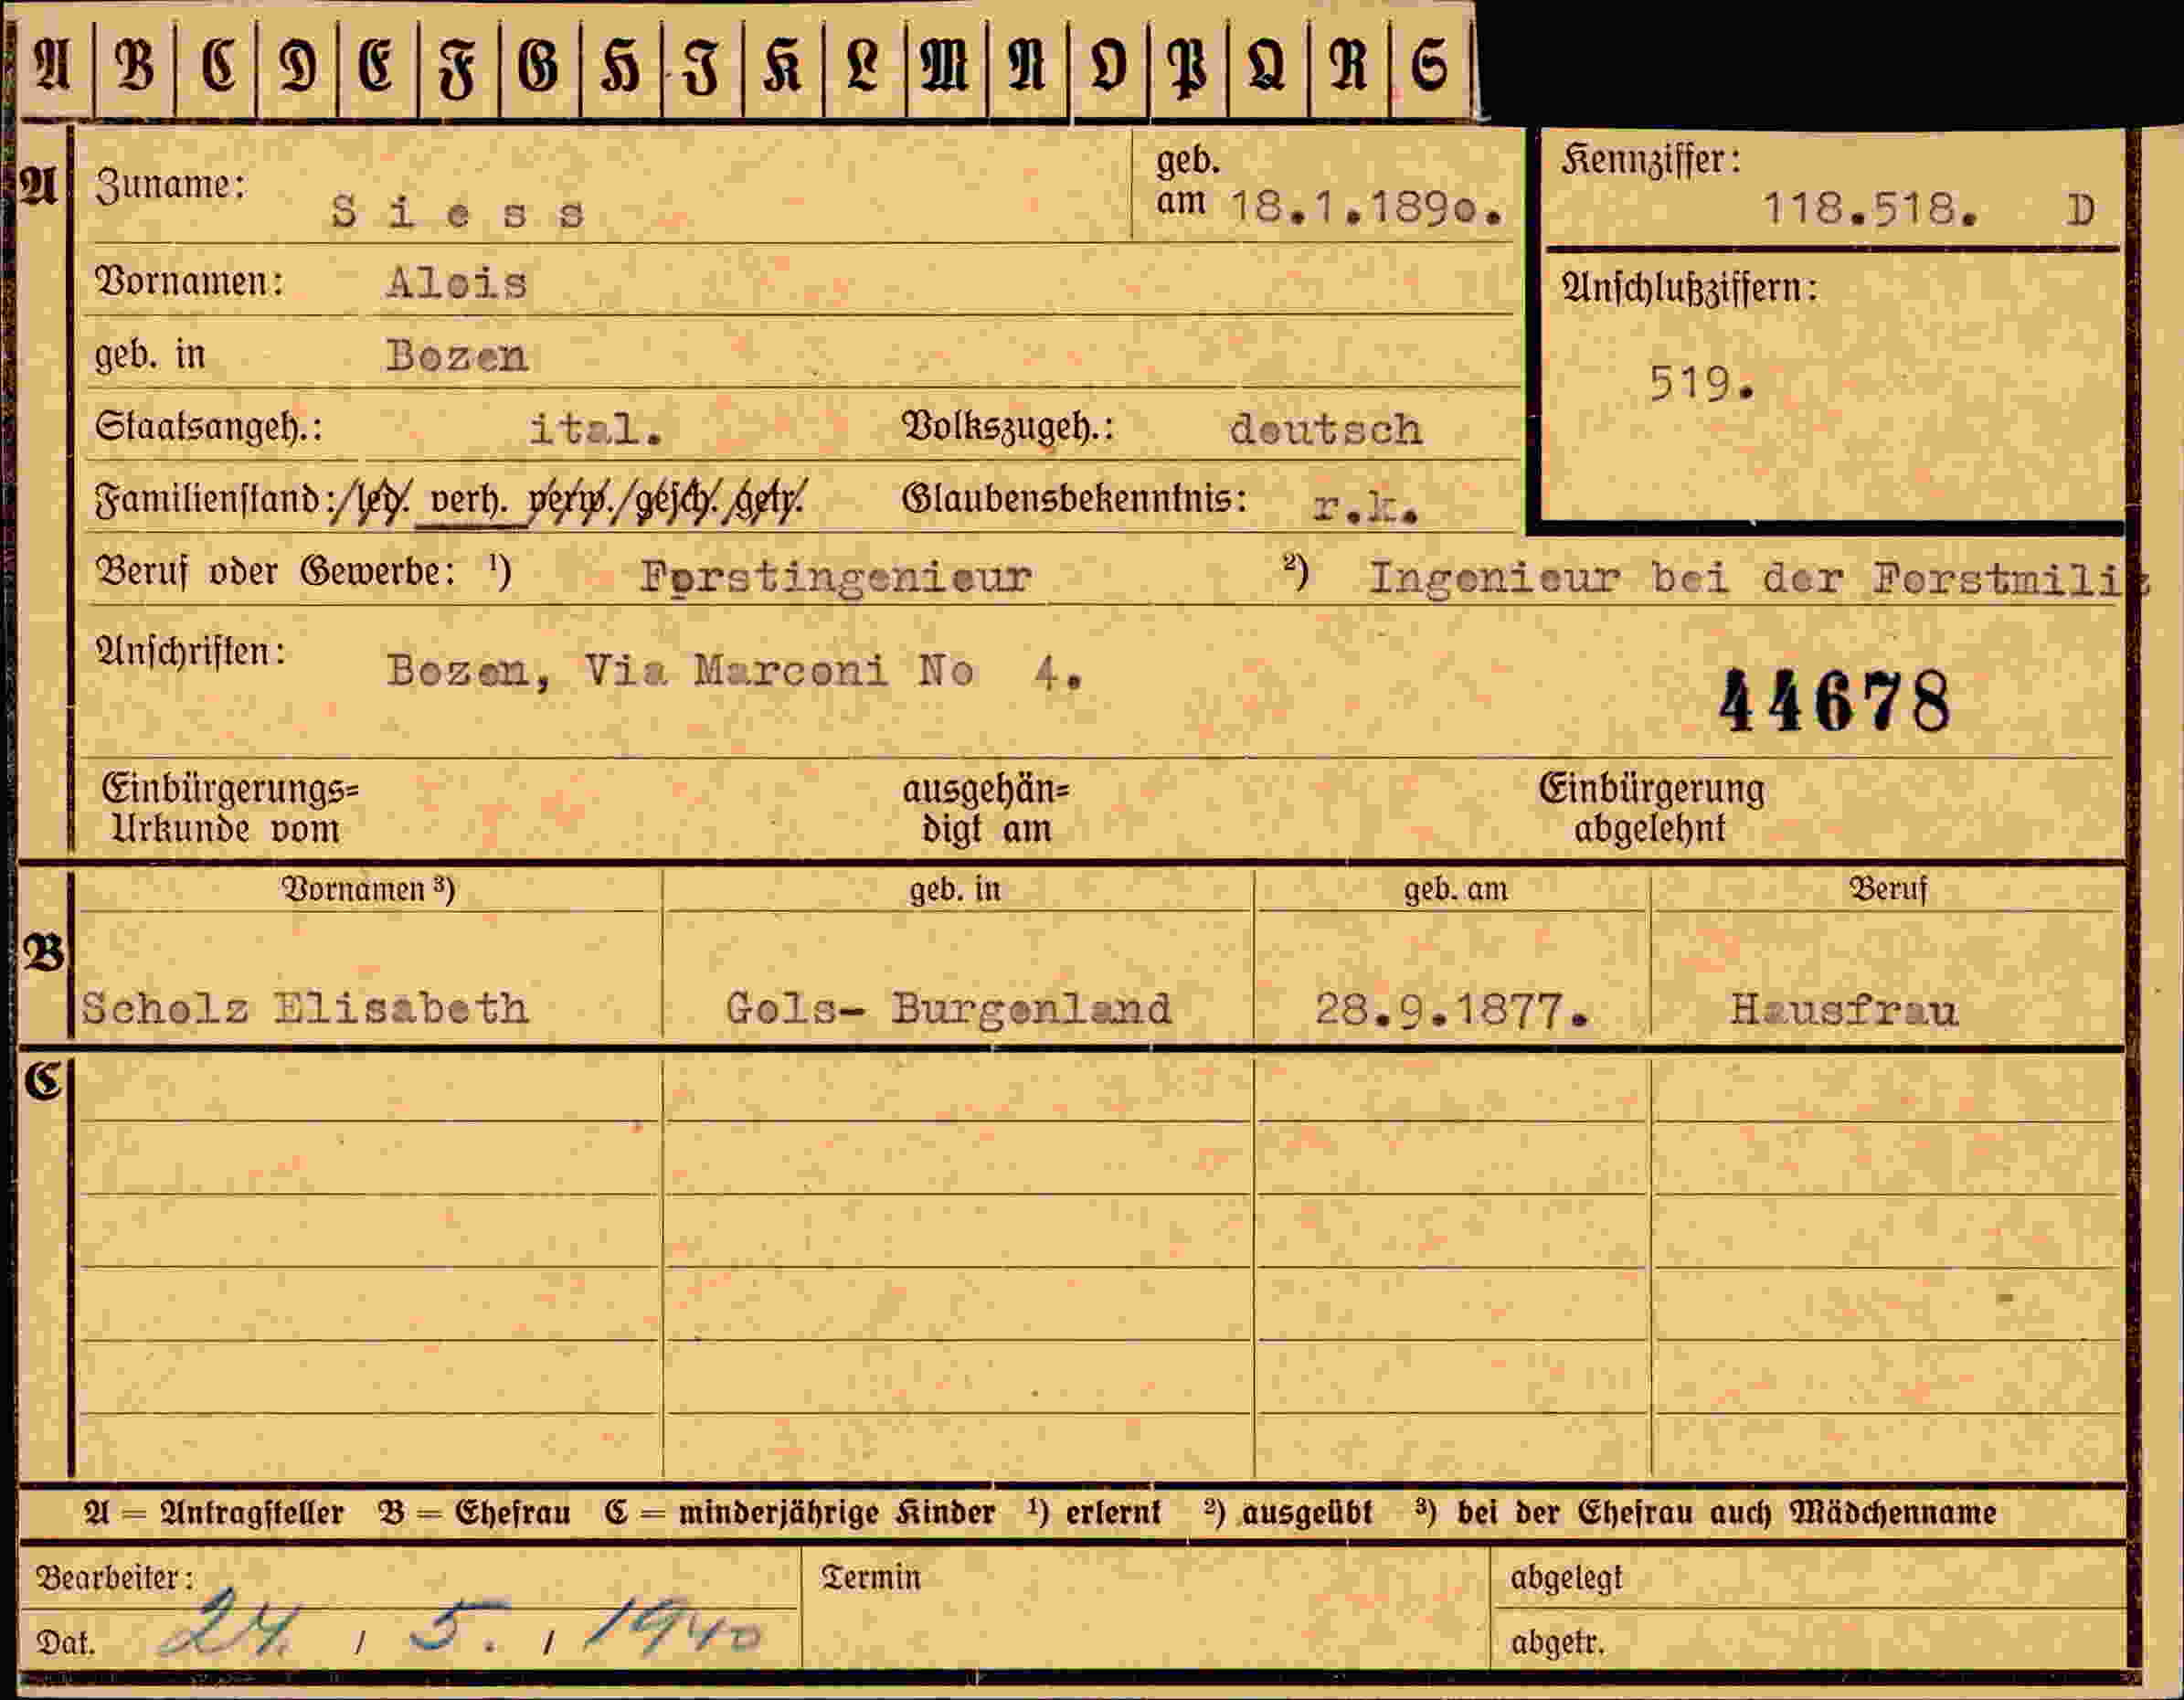 A B C D E F G H J K L M N O P Q R S
A Zuname: Siess geb. am 18.1.1890. Kennziffer: 118.518. D
Vornamen: Alois Anschlußziffern:
geb. in Bozen 519.
Staatsangeh.: ital. Volkszugeh.: deutsch
Familienstand: led. verh. verw. gesch. getr. Glaubensbekenntnis: r.k.
Beruf oder Gewerbe: ¹) Forstingenieur ²) Ingenieur bei der Forstmiliz
Anschriften: Bozen, Via Marconi No 4.
44678
Einbürgerungs= ausgehän= Einbürgerung
Urkunde vom digt am abgelehnt
Vornamen ³) geb. in geb. am Beruf
B
Scholz Elisabeth Gols- Burgenland 28.9.1877. Hausfrau
C
A = Antragsteller B = Ehefrau C = minderjährige Kinder ¹) erlernt ²) ausgeübt ³) bei der Ehefrau auch Mädchenname
Bearbeiter: Termin abgelegt
Dat. 24. / 5. / 1940 abgetr.